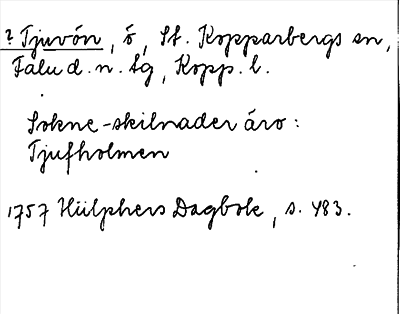 ? Tjuvön, ö, St. Kopparbergs sn,
Falu d. n. tg, Kopp. l.
Sokne-skilnader äro:
Tjufholmen
1757 Hülphers Dagbok, s. 483.